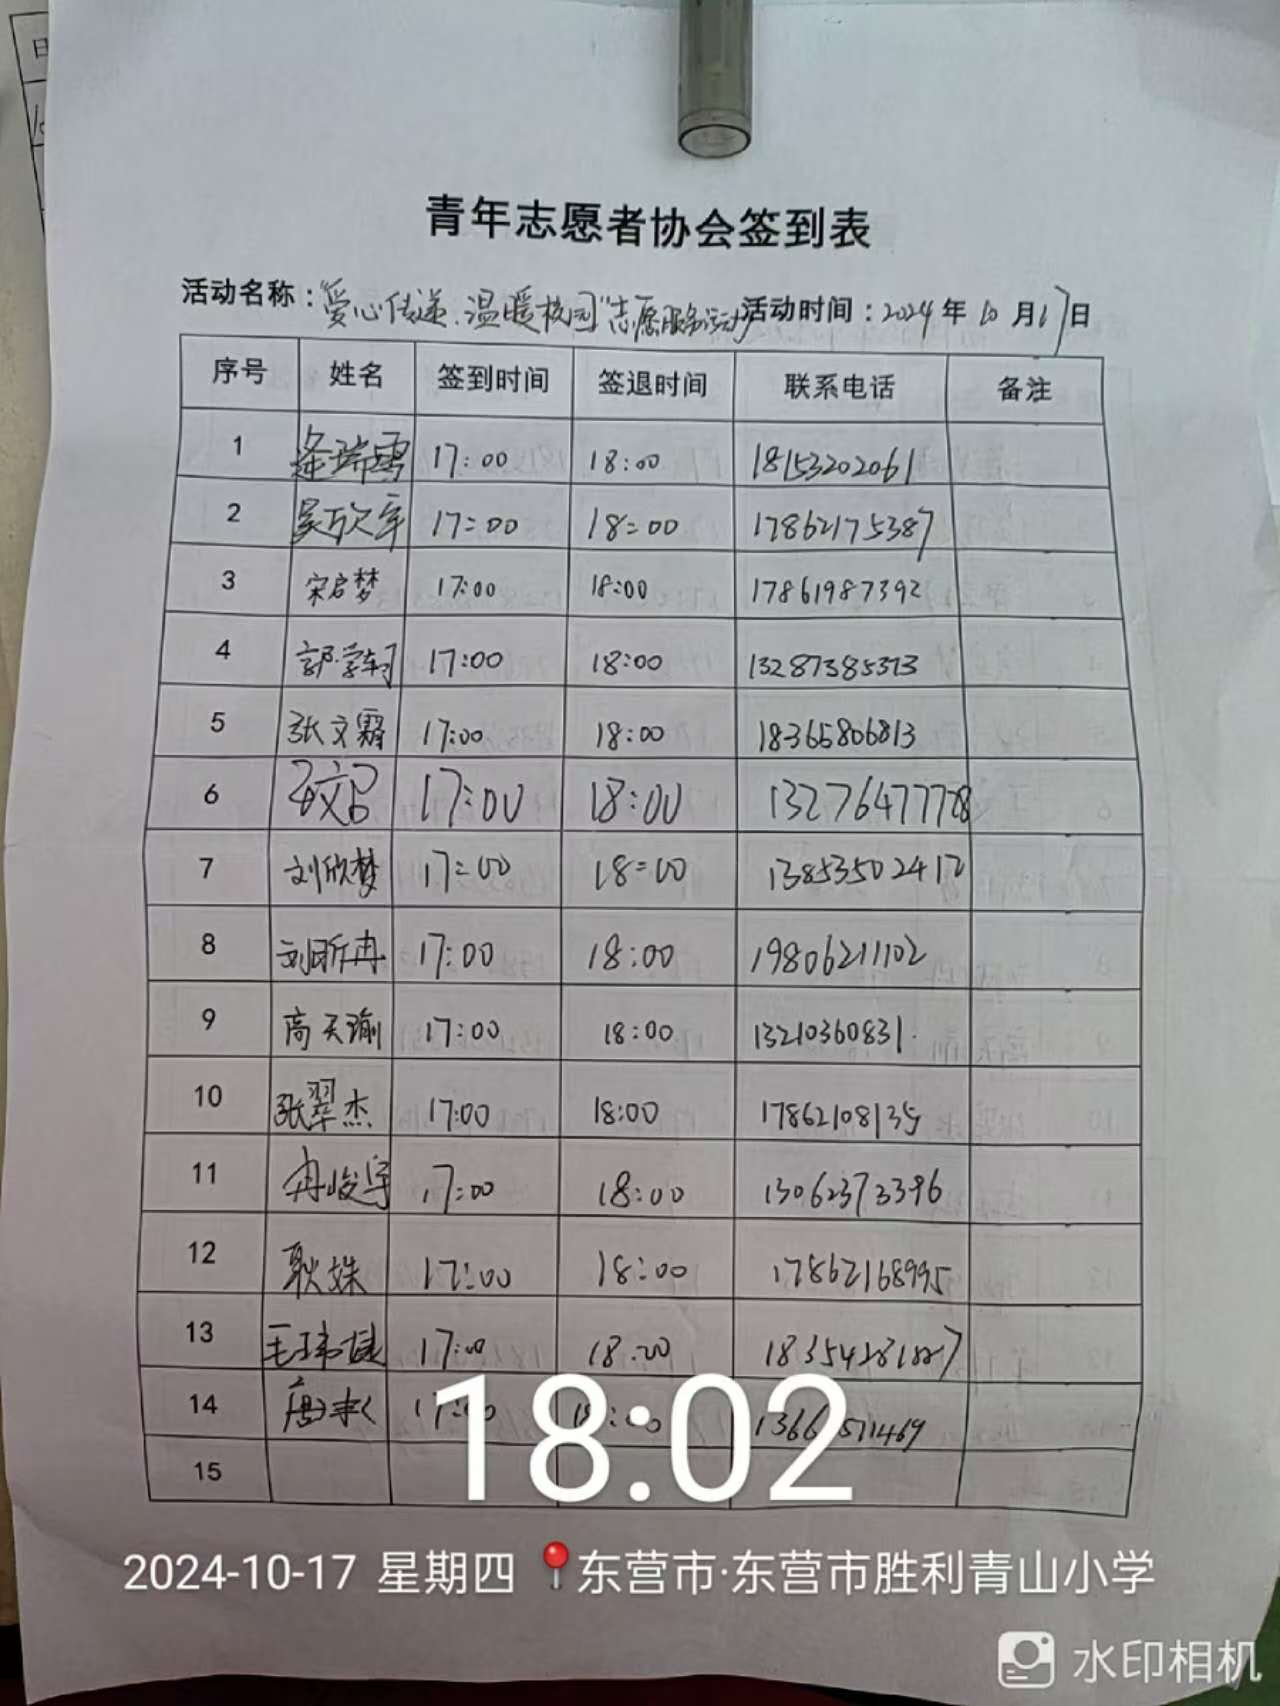 青年志愿者协会签到表
活动名称：“爱心传递.温暖校园”志愿服务活动 活动时间：2024年10月17日
序号 姓名 签到时间 签退时间 联系电话 备注
1 逄瑞雪 17:00 18:00 18153202061
2 吴欣宇 17:00 18:00 17862175387
3 宋启梦 17:00 18:00 17861987392
4 郭学轲 17:00 18:00 13287385373
5 张文霸 17:00 18:00 18365806813
6 17:00 18:00 13276477728
7 刘欣梦 17:00 18:00 13853502412
8 刘昕冉 17:00 18:00 19806211102
9 高天瑜 17:00 18:00 13210360831
10 张翠杰 17:00 18:00 17862108135
11 冉峻宇 17:00 18:00 13062373396
12 耿姝 17:00 18:00 17862168995
13 17:00 18:00
14 17:00 18:00
15
18:02
2024-10-17 星期四 东营市·东营市胜利青山小学
水印相机